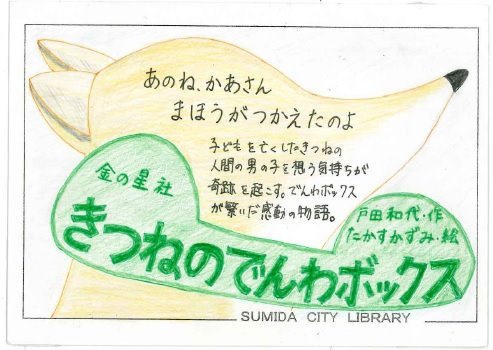 あのね、かあさん
まほうがつかえたのよ
子どもを亡くしたきつねの
人間の男の子を想う気持ちが
奇跡を起こす。でんわボックス
が繋いだ感動の物語。
金の星社
戸田和代・作
たかすかずみ・絵
きつねのでんわボックス
SUMIDA CITY LIBRARY